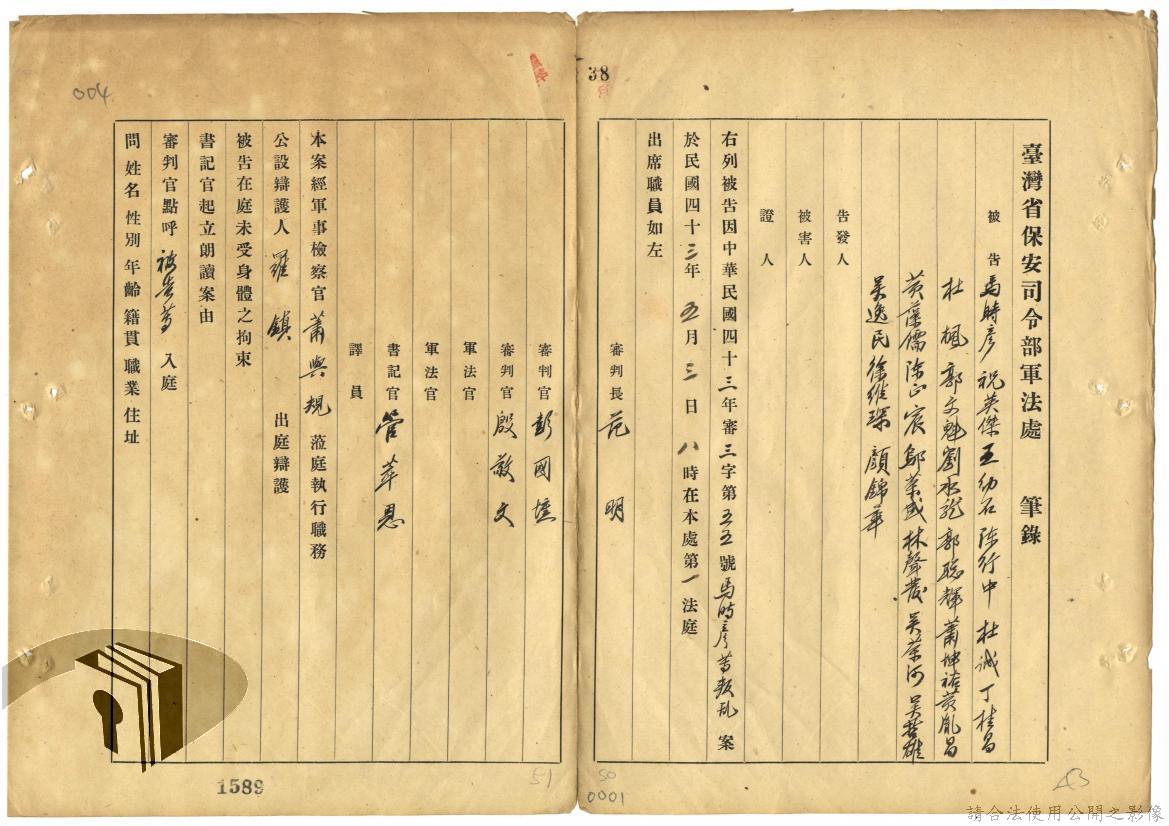 38
臺灣省保安司令部軍法處 筆錄
被告 馬時彥 祝英傑 王幼石 陳行中 杜誠 丁桂昌
杜楓 郭文魁 劉水龍 郭聰輝 蕭坤裕 黃胤昌
黃藻儒 陳正宸 鄔葉盛 林聲發 吳荣河 吳哲雄
吳逸民 徐維琛 顏錦華
告發人
被害人
證人
右列被告因中華民國四十三年審三字第五五號馬時彥等叛乱案
於民國四十三年五月三日八時在本處第一法庭
出席職員如左
審判長 范明
審判官 彭國壎
審判官 殷敬文
軍法官
軍法官
書記官 管萃恩
譯員
本案經軍事檢察官 蕭與規 蒞庭執行職務
公設辯護人 羅鎮 出庭辯護
被告在庭未受身體之拘束
書記官起立朗讀案由
審判官點呼 被告等 入庭
問 姓名 性別 年齡 籍貫 職業 住址
004
1589
51
50
0001
請合法使用公開之影像